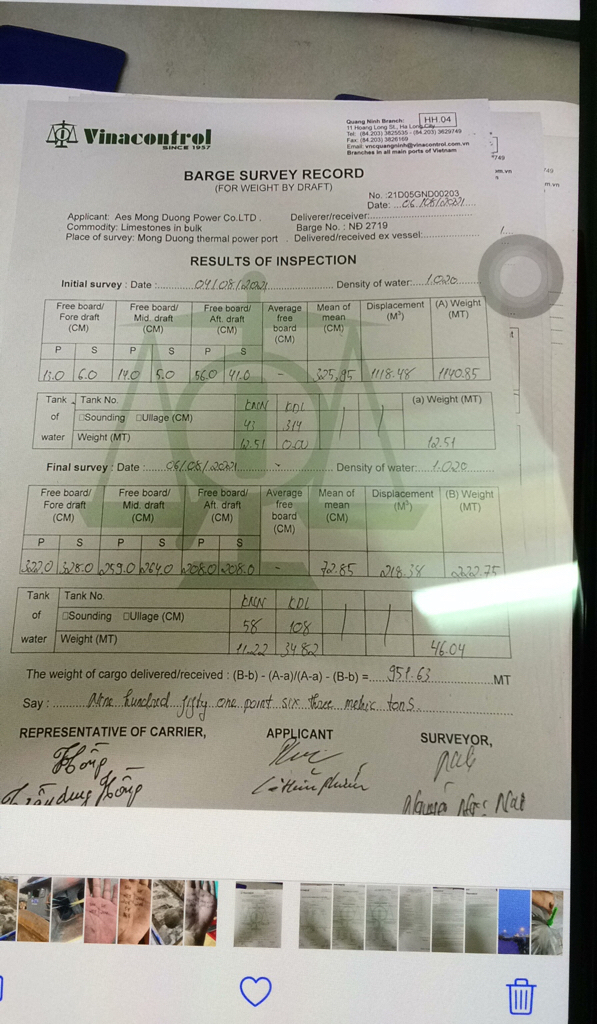 Vinacontrol
SINCE 1957
Quang Ninh Branch:
HH.04
11 Hoang Long St., Ha Long City
Tel: (84.203) 3825535 - (84.203) 3829749
Fax: (84.203) 3826169
Email: vncquangninh@vinacontrol.com.vn
Branches in all main ports of Vietnam
BARGE SURVEY RECORD
(FOR WEIGHT BY DRAFT)
No. :21D05GND00203
Date: ...06/08/2021
Applicant: Aes Mong Duong Power Co.LTD .
Deliverer/receiver:
Commodity: Limestones in bulk
Barge No. : NĐ 2719
Place of survey: Mong Duong thermal power port .
Delivered/received ex vessel:
RESULTS OF INSPECTION
Initial survey : Date : 04/08/2021 Density of water: 1.020
Free board/ Fore draft (CM) Free board/ Mid. draft (CM) Free board/ Aft. draft (CM) Average free board (CM) Mean of mean (CM) Displacement (M³) (A) Weight (MT)
P S P S P S
13.0 6.0 14.0 5.0 56.0 41.0 325,95 1118.48 1140.85
Tank of water Tank No. KMN KDL (a) Weight (MT)
□Sounding □Ullage (CM) 43 314
Weight (MT) 12.51 0.00 12.51
Final survey : Date : 06/08/2021 Density of water: 1.020
Free board/ Fore draft (CM) Free board/ Mid. draft (CM) Free board/ Aft. draft (CM) Average free board (CM) Mean of mean (CM) Displacement (M³) (B) Weight (MT)
P S P S P S
322.0 328.0 259.0 264.0 208.0 208.0 - 72.85 218.38 222.75
Tank of water Tank No. KMN KDL
□Sounding □Ullage (CM) 58 108
Weight (MT) 11.22 34.82 46.04
The weight of cargo delivered/received : (B-b) - (A-a)/(A-a) - (B-b) = 951.63 MT
Say : Nine hundred fifty one point six three metric tons.
REPRESENTATIVE OF CARRIER, APPLICANT SURVEYOR,
Hồng
Hồng